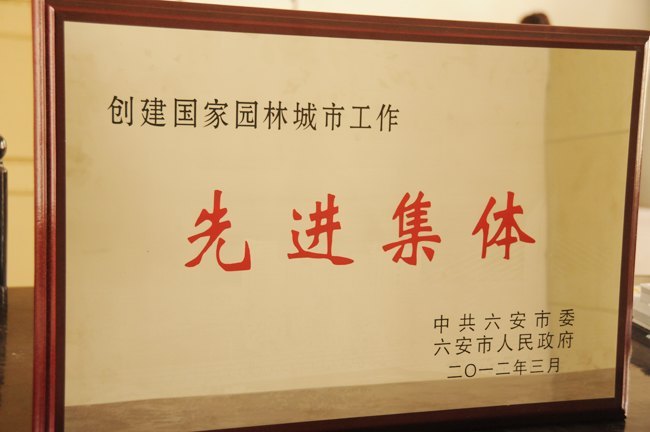 创建国家园林城市工作
先进集体
中共六安市委
六安市人民政府
二〇一二年三月